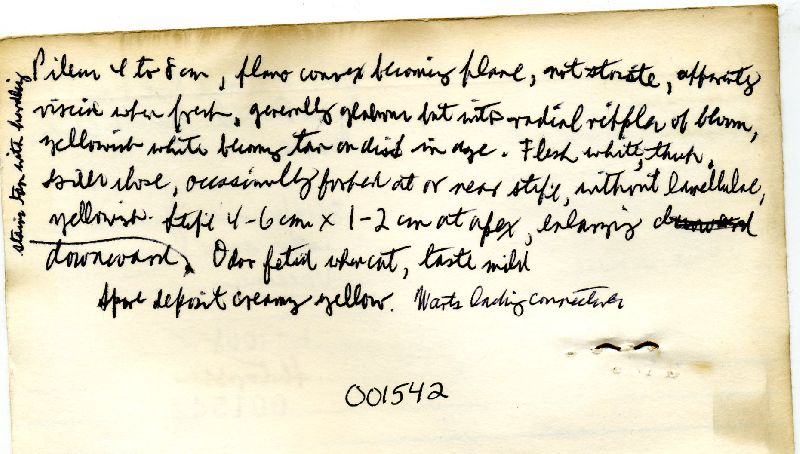 Pileus 4 to 8 cm, plano convex becoming plane, not striate, apparently
viscid when fresh, generally glabrous but with radial ripples of bloom,
yellowish white becoming tan on disk in age. Flesh white, thick,
Gills close, occasionally forked at or near stipe, without lamellulae,
yellowish. Stipe 4-6 cm x 1-2 cm at apex, enlarging
downward, Odor fetid when cut, taste mild
Spore deposit creamy yellow. Warts lacking connectives
stains tan with handling
001542